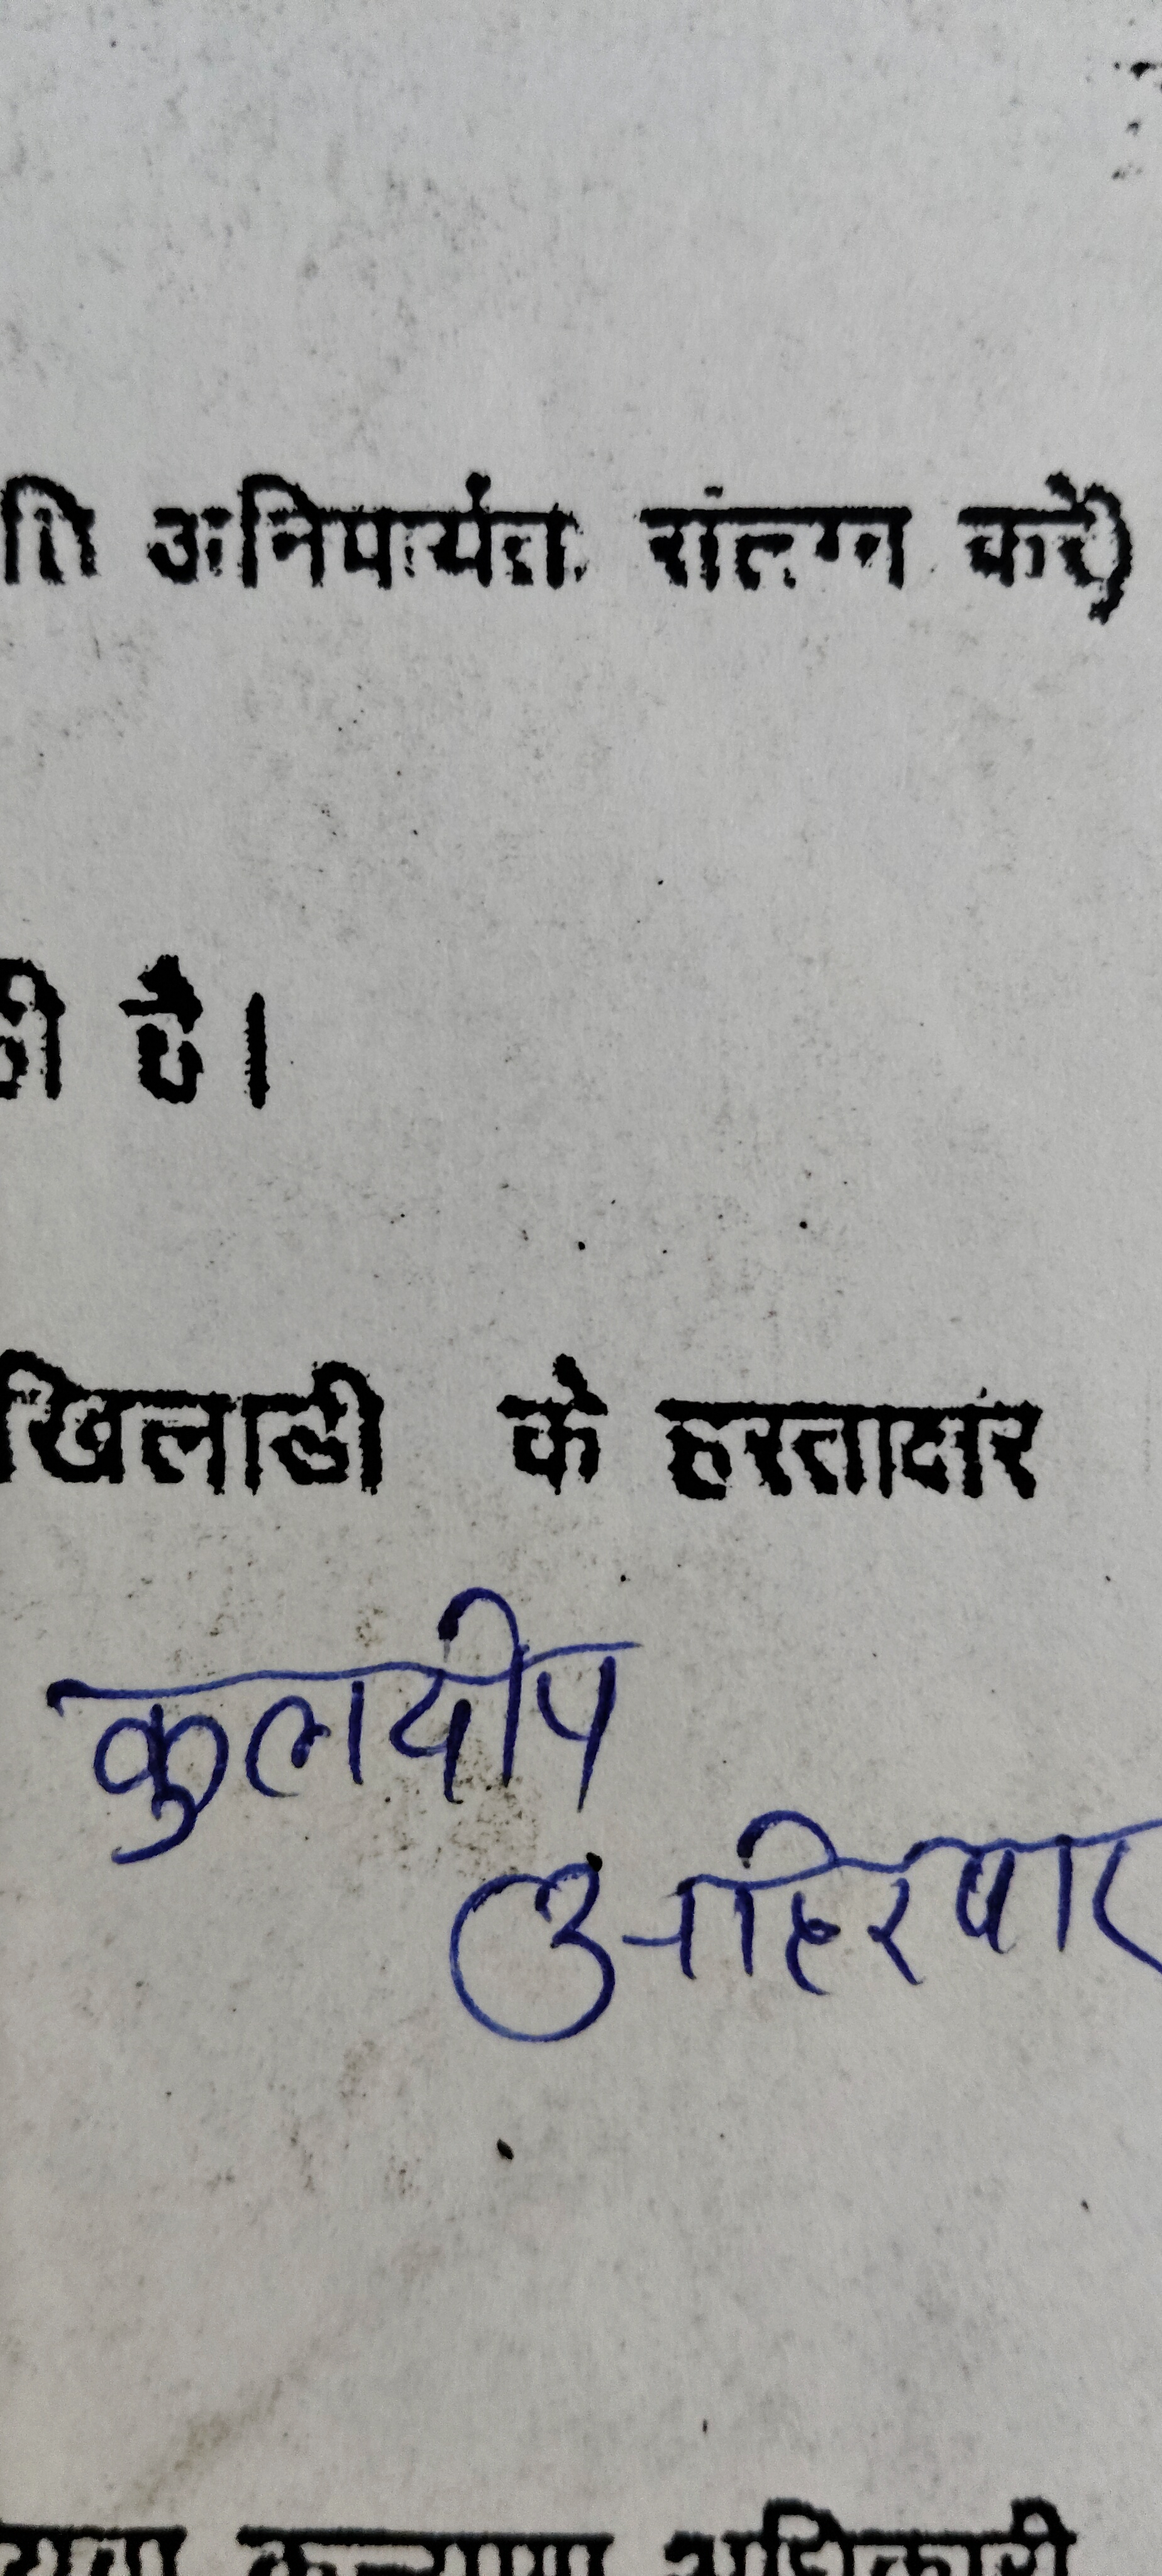 अनिवार्यतः संलग्न करें)
ही है।
खिलाडी के हस्ताक्षर
कुलदीप
अहिरवार
युवा कल्याण अधिकारी